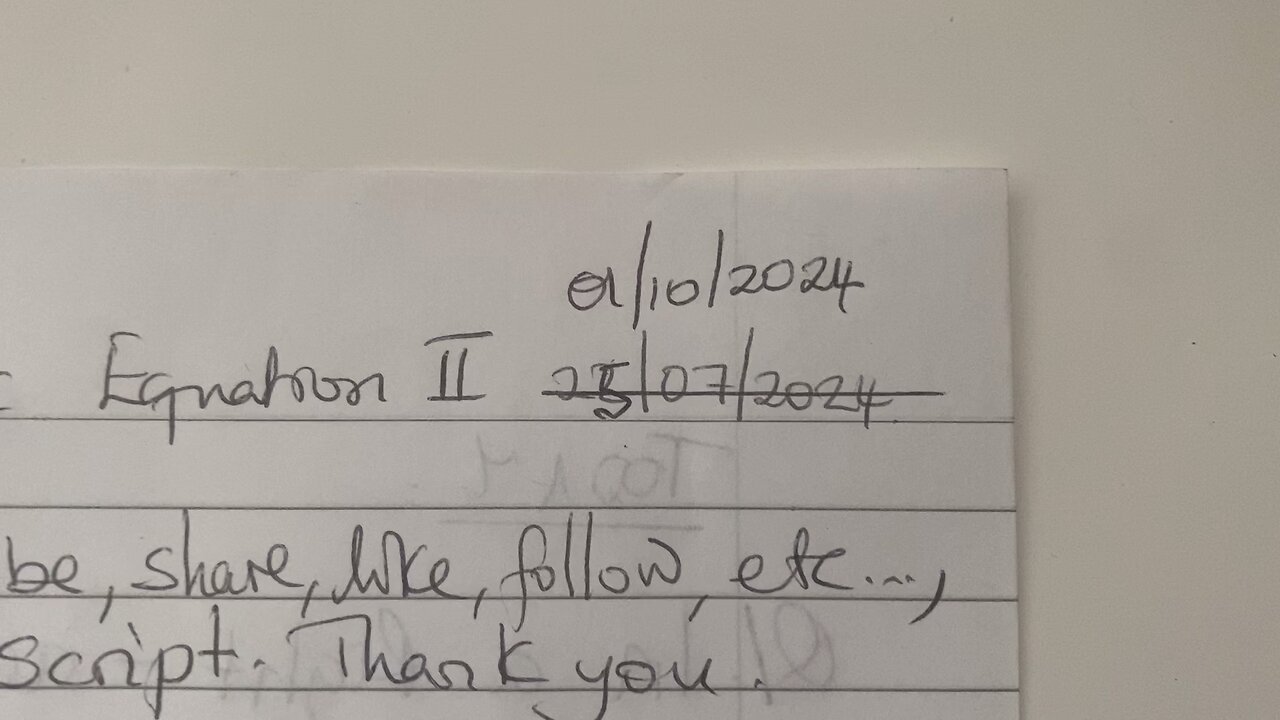 01/10/2024
Equation II 25/07/2024
be, share, like, follow, etc...,
script. Thank you.